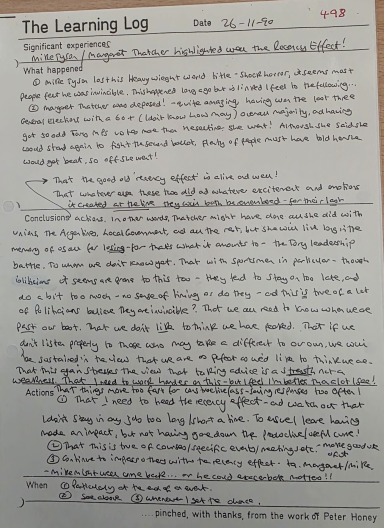 498
The Learning Log Date 26-11-90
Significant experiences
Mike Tyson / Margaret Thatcher highlighted well the Recency Effect!
What happened
① Mike Tyson lost his Heavyweight world title - Shock horror, it seems most
people feel he was invincible. This happened long ago but is linked I feel to the following...
② Margaret Thatcher was deposed! - quite amazing, having won the last three
General elections with a 60+ (I don't know how many) overall majority, and having
got so odd Tory MPs votes more than Heseltine, she went! Although she said she
would stand again to fight the second ballot. Plenty of people must have told her she
would get beat, so off she went!
→ That the good old 'recency effect' is alive and well!
That whatever else these two did and whatever excitement and emotions
is created at the time they will both be remembered - for their last
Conclusions/actions. In other words, Thatcher might have done all she did with
Unions, the Argentines, Local Government, and all the rest, but she will live long in the
memory of us all for losing - for that's what it amounts to - the Tory leadership
battle. To whom we don't know yet. That with sportsmen in particular - though
politicians it seems are prone to this too - they tend to stay on too late, and
do a bit too much - no sense of timing or do they - and this is true of a lot
of Politicians believe they are invincible? That we all need to know when we are
past our best. That we don't like to think we have peaked. That if we
don't listen properly to those who may take a different to our own, we will
be sustained in the view that we are as perfect as we'd like to think we are.
That this again stresses the view that taking advice is a strength, not a
weakness. That I need to work harder on this - but I feel I'm better than a lot I see!
That things move too fast for us
Actions
① That I need to heed the recency effect - and watch out that
I don't stay in any job too long / short a time. To ensure I leave having
made an impact, but not having gone down the productive/useful curve!
② That this is true of courses/specific events/meetings etc.
③ Continue to impress others with the recency effect - to Margaret/Mike
- Mike might well come back... or he could
When ① Particularly at the end of an event.
② See above ③ whenever I get the chance.
....pinched, with thanks, from the work of Peter Honey